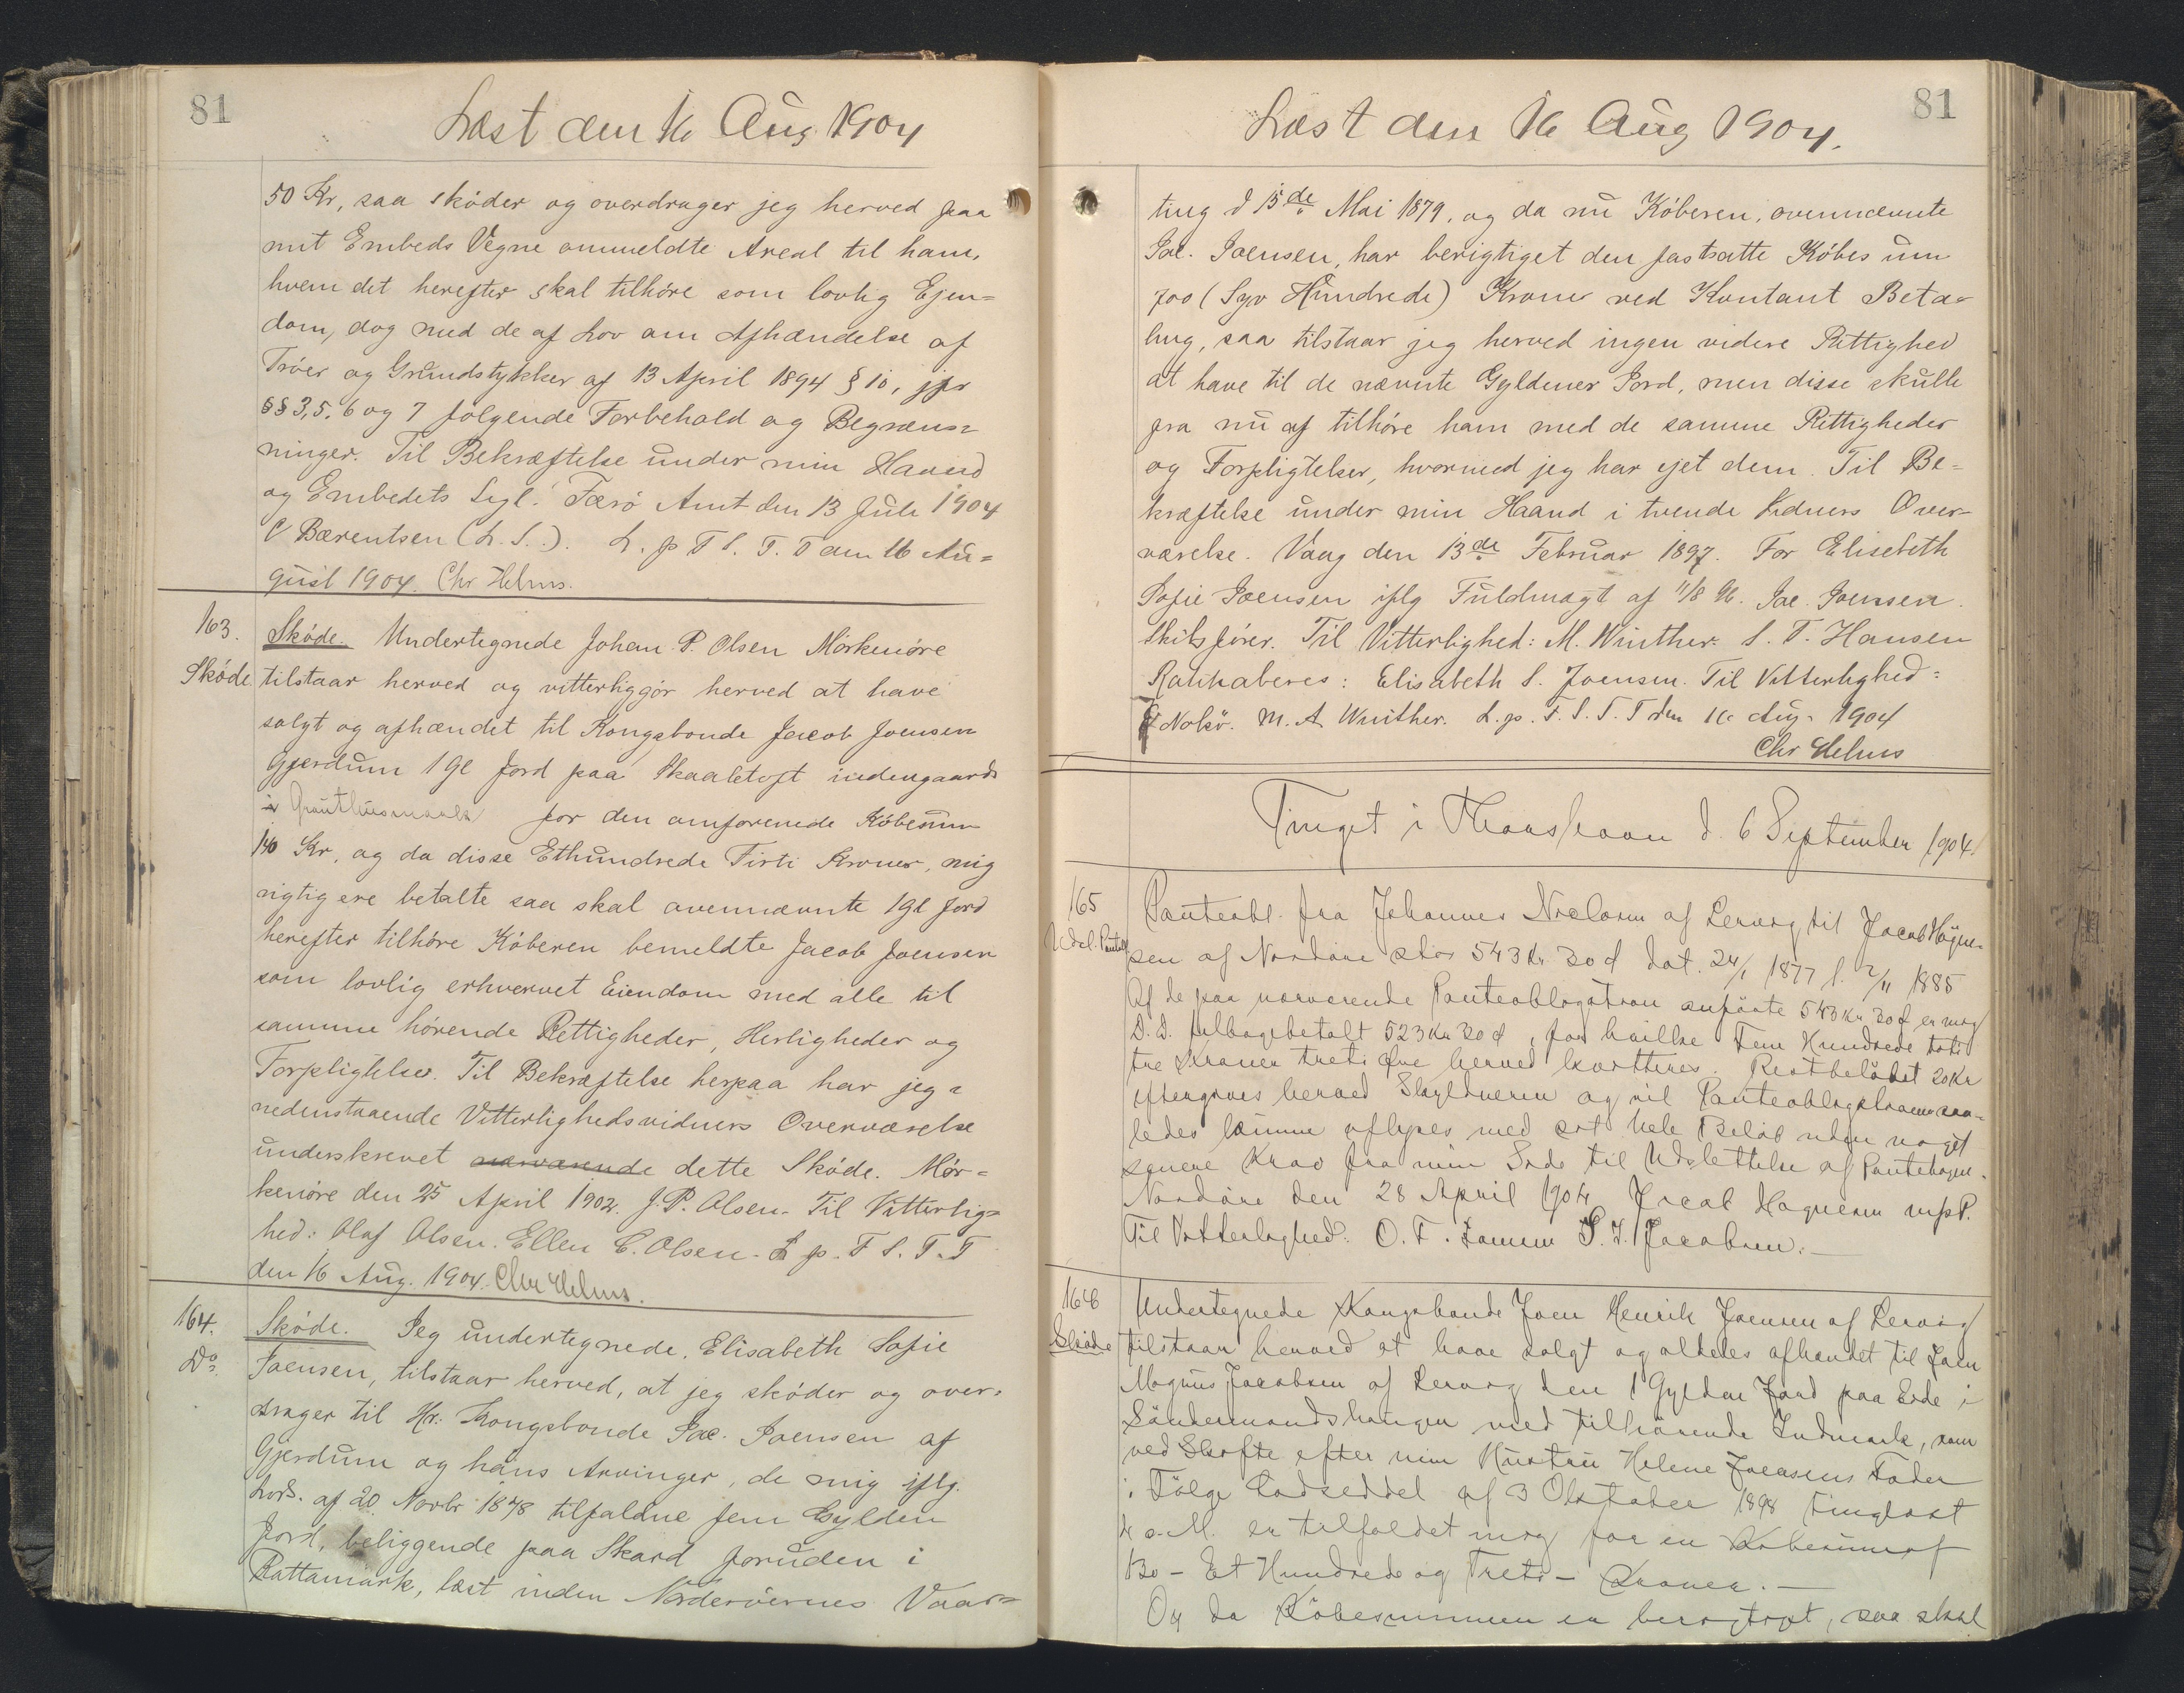 81
Læst den 16 Aug 1904
50 Kr, saa skøder og overdrager jeg herved paa
mit Embeds Vegne ommeldte Areal til ham,
hvem det herefter skal tilhøre som lovlig Ejen=
dom, dog med de af Lov om Afhændelse af
Trøer og Grundstykker af 13 April 1894 § 10, jfr
§§ 3, 5, 6 og 7 følgende Forbehold og Begræns=
ninger. Til Bekræftelse under min Haand
og Embedets Segl. Færø Amt den 13 Juli 1904
C Bærentsen (L.S.). L. p T S. T. T den 16 Au=
gust 1904. Chr Helms.
163.
Skøde
Skøde. Undertegnede Johan P. Olsen Mørkenøre
tilstaar herved og vitterliggør herved at have
solgt og afhændet til Kongsbonde Jacob Joensen
Gjerdum 1 Gl Jord paa Skaaletoft indengaards
i for den omforenede Købesum
140 Kr, og da disse Ethundrede Firti Kroner, mig
rigtig ere betalte saa skal ovennævnte 1 Gl Jord
herefter tilhøre Køberen bemeldte Jacob Joensen
som lovlig erhvervet Eiendom med alle til
samme hørende Rettigheder, Herligheder og
Forpligtelser. Til Bekræftelse herpaa har jeg i
nedenstaaende Vitterlighedsvidners Overværelse
underskrevet nærværende dette Skøde. Mør=
kenøre den 25 April 1902. J. P. Olsen. Til Vitterlig=
hed: Olaf Olsen. Ellen C. Olsen. L p. F S. T. T
den 16 Aug. 1904. Chr Helms.
164.
Do.
Skøde. Jeg undertegnede, Elisabeth Sofie
Joensen, tilstaar herved, at jeg skøder og over=
drager til Hr. Kongsbonde Jac. Joensen af
Gjerdum og hans Arvinger, de mig iflg.
Lods. af 20 Novbr 1878 tilfaldne fem Gylden
Jord, beliggende paa Skard foruden i
Rattamark, læst inden Norderøernes Vaar=
81
Læst den 16 Aug 1904.
ting d 15de Mai 1879, og da nu Køberen, ovennævnte
Jac. Joensen, har berigtiget den fastsatte Købesum
700 (Syv Hundrede) Kroner ved Kontant Beta=
ling, saa tilstaar jeg herved ingen videre Rettighed
at have til de nævnte Gyldener Jord, men disse skulle
fra nu af tilhøre ham med de samme Rettigheder
og Forpligtelser, hvormed jeg har ejet dem. Til Be=
kræftelse under min Haand i tvende Vidners Over=
værelse. Vaag den 13de Februar 1897. For Elisebeth
Sofie Joensen iflg Fuldmagt af 11/8 96. Jac. Joensen.
Skibsfører. Til Vitterlighed: M. Winther. S. T. Hansen
Ratihaberes: Elisabeth S. Joensen. Til Vitterlighed:
Nolsø. M. A Winther. L. p. F. S. T. T den 16 Aug. 1904
Chr Helms
Tinget i Thorshavn d. 6 September 1904.
165
Udsl. Panteobl
Panteobl. fra Johannes Nielsen af Lervig til Jacob Høgne=
sen af Nordøre stor 543 Kr 30 Ø dat. 24/1 1877 l. 7/11 1885
Af de paa nærværende Panteobligation anførte 543 Kr 30 Ø er mig
D.D. tilbagebetalt 523 Kr 30 Ø, for hvilke Fem Hundrede toti
tre Kroner treti Øre herved kvitteres. Restbeløbet 20 Kr
eftergives herved Skyldneren og vil Panteobligationen saa=
ledes kunne aflyses med sit hele Beløb uden noget
senere Krav fra min Side til Udslettelse af Pantebogen.
Nordøre den 28 April 1904 Jacob Høgnesen mpP.
Til Vitterlighed: O. F. S. J. Jacobsen.
166
Skøde
Undertegnede Kongsbonde Joen Henrik Joensen af Lervig
tilstaar herved at have solgt og aldeles afhændet til Joen
Magnus Jacobsen af Lervig den 1 Gylden Jord paa Eide i
Søndermandshaugen med tilhørende Indmark, som
ved Skifte efter min Hustru Helene Joensens Fader
i Følge Lodseddel af 3 Oktober 1898 tinglæst
4 s. M. er tilfaldet mig for en Købesum af
130 - Et Hundrede og Treti - Kroner.
Og da Købesummen er berigtiget, saa skal